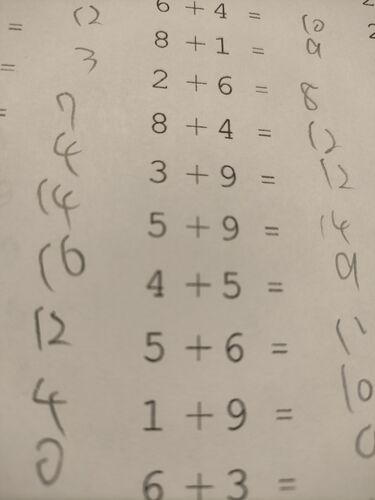 = 12 6 + 4 = 10
= 3 8 + 1 = 9
= 7 2 + 6 = 8
4 8 + 4 = 12
14 3 + 9 = 12
16 5 + 9 = 14
12 4 + 5 = 9
4 5 + 6 = 11
0 1 + 9 = 10
6 + 3 =